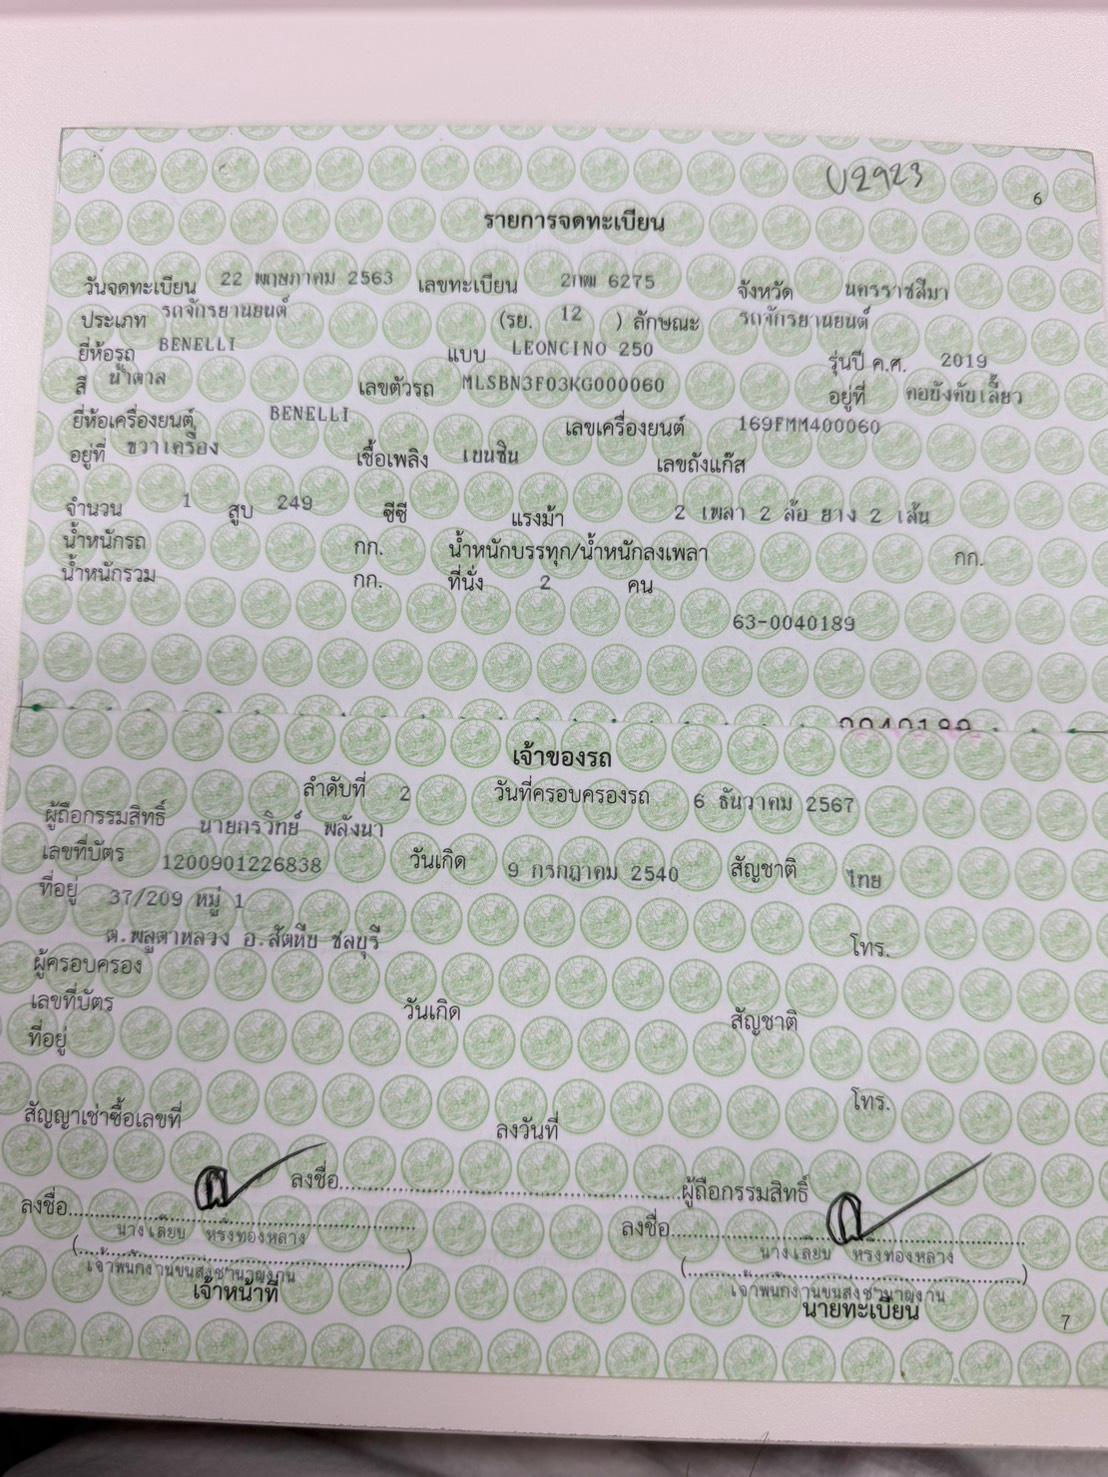 U2923
6
รายการจดทะเบียน
วันจดทะเบียน 22 พฤษภาคม 2563 เลขทะเบียน 6275 จังหวัด นครราชสีมา
ประเภท รถจักรยานยนต์ (รย. 12 ) ลักษณะ รถจักรยานยนต์
ยี่ห้อรถ BENELLI แบบ LEONCINO 250 รุ่นปี ค.ศ. 2019
สี น้ำตาล เลขตัวรถ MLSBN3F03KG000060 อยู่ที่ คอบังคับเลี้ยว
ยี่ห้อเครื่องยนต์ BENELLI เลขเครื่องยนต์ 169FMM400060
อยู่ที่ ขวาเครื่อง เชื้อเพลิง เบนซิน เลขถังแก๊ส
จำนวน 1 สูบ 249 ซีซี แรงม้า 2 เพลา 2 ล้อ ยาง 2 เส้น
น้ำหนักรถ กก. น้ำหนักบรรทุก/น้ำหนักลงเพลา กก.
น้ำหนักรวม กก. ที่นั่ง 2 คน
63-0040189
0040189
เจ้าของรถ
ลำดับที่ 2 วันที่ครอบครองรถ 6 ธันวาคม 2567
ผู้ถือกรรมสิทธิ์ นายกรวิทย์ พลังนา
เลขที่บัตร 1200901226838 วันเกิด 9 กรกฎาคม 2540 สัญชาติ ไทย
ที่อยู่ 37/209 หมู่ 1
ต.พลูตาหลวง อ.สัตหีบ ชลบุรี โทร.
ผู้ครอบครอง
เลขที่บัตร วันเกิด สัญชาติ
ที่อยู่
โทร.
สัญญาเช่าซื้อเลขที่ ลงวันที่
ลงชื่อ ผู้ถือกรรมสิทธิ์
ลงชื่อ ลงชื่อ
นางเลียบ หริ่งทองหลาง นางเลียบ หริ่งทองหลาง
เจ้าพนักงานขนส่งชำนาญงาน เจ้าพนักงานขนส่งชำนาญงาน
เจ้าหน้าที่ นายทะเบียน
7